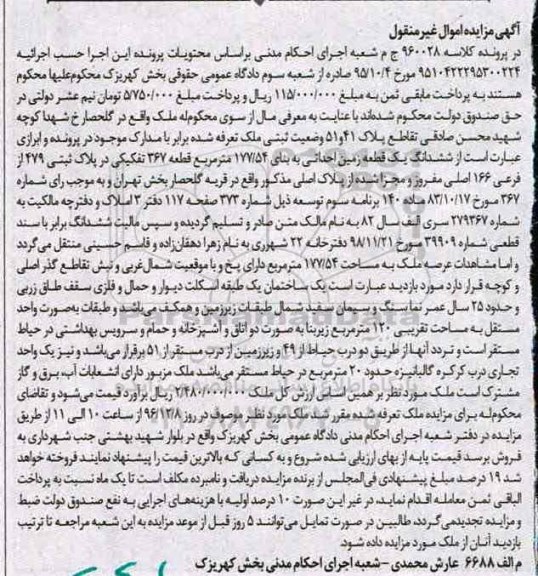 آگهی مزایده اموال غیر منقول
در پرونده کلاسه ۹۶۰۰۲۸ ج م شعبه اجرای احکام مدنی براساس محتویات پرونده این اجرا حسب اجرائیه
۹۵۱۰۴۲۲۲۹۵۳۰۰۲۲۴ مورخ ۹۵/۱۰/۴ صادره از شعبه سوم دادگاه عمومی حقوقی بخش کهریزک محکوم‌علیها محکوم
هستند به پرداخت مابقی ثمن به مبلغ ۱۱۵/۰۰۰/۰۰۰ ریال و پرداخت مبلغ ۵/۷۵۰/۰۰۰ تومان نیم عشر دولتی در
حق صندوق دولت محکوم شده‌اند با عنایت به معرفی مال از سوی محکوم‌له ملک واقع در گلحصار خ شهدا کوچه
شهید محسن صادقی تقاطع پلاک ۴۱ و ۵۱ وضعیت ثبتی ملک تعرفه شده برابر با مدارک موجود در پرونده و ابرازی
عبارت است از ششدانگ یک قطعه زمین احداثی به بنای ۱۷۷/۵۴ مترمربع قطعه ۳۶۷ تفکیکی در پلاک ثبتی ۴۷۹ از
فرعی ۱۶۶ اصلی مفروز و مجزا شده از پلاک اصلی مذکور واقع در قریه گلحصار بخش تهران و به موجب رای شماره
۳۶۷ مورخ ۸۳/۱۰/۱۷ ماده ۱۴۰ برنامه سوم توسعه ذیل شماره ۳۷۳ صفحه ۱۱۷ دفتر ۳ املاک و دفترچه مالکیت به
شماره ۲۷۹۳۶۷ سری الف سال ۸۲ به نام مالک متن صادر و تسلیم گردیده و سپس مالیت ششدانگ برابر با سند
قطعی شماره ۳۹۹۰۹ مورخ ۹۸/۱۱/۲۱ دفترخانه ۲۲ شهرری به نام زهرا دهقان‌زاده و قاسم حسینی منتقل می‌گردد
و اما مشاهدات عرصه ملک به مساحت ۱۷۷/۵۴ مترمربع دارای پخ و با موقعیت شمال‌غربی و نبش تقاطع گذر اصلی
و کوچه قرار دارد مورد بازدید عبارت است یک ساختمان یک طبقه اسکلت دیوار و حمال و فلزی سقف طاق زربی
و حدود ۲۵ سال عمر نما سنگ و سیمان سفید شمال طبقات زیرزمین و همکف می‌باشد و طبقات به‌صورت واحد
مستقل به مساحت تقریبی ۱۲۰ مترمربع زیربنا به صورت دو اتاق و آشپزخانه و حمام و سرویس بهداشتی در حیاط
مستقر است و تردد آنها از طریق دو درب حیاط از ۴۹ و زیرزمین از درب مستقر از ۵۱ برقرار می‌باشد و نیز یک واحد
تجاری درب کرکره گالبانیزه حدود ۲۰ مترمربع در حیاط مستقر می‌باشد ملک مزبور دارای انشعابات آب، برق و گاز
مشترک است ملک مورد نظر بر همین اساس ارزش کل ملک ۲/۴۸۰/۰۰۰/۰۰۰ ریال برآورد قیمت می‌شود و تقاضای
محکوم‌له برای مزایده ملک تعرفه‌شده مقرر شد ملک مورد نظر موصوف در روز ۹۶/۱۲/۸ از ساعت ۱۰ الی ۱۱ از طریق
مزایده در دفتر شعبه اجرای احکام مدنی دادگاه عمومی بخش کهریزک واقع در بلوار شهید بهشتی جنب شهرداری به
فروش برسد قیمت پایه از بهای ارزیابی شده شروع و به کسانی که بالاترین قیمت را پیشنهاد نمایند فروخته خواهد
شد ۱۹ درصد مبلغ پیشنهادی فی‌المجلس از برنده مزایده دریافت و نامبرده مکلف است تا یک ماه نسبت به پرداخت
الباقی ثمن معامله اقدام نماید، در غیر این صورت ۱۰ درصد اولیه با هزینه‌های اجرایی به نفع صندوق دولت ضبط
و مزایده تجدید می‌گردد، طالبین در صورت تمایل می‌توانند ۵ روز قبل از موعد مزایده به این شعبه مراجعه تا ترتیب
بازدید آنان از ملک مورد مزایده داده شود.
م الف ۶۶۸۸ عارش محمدی - شعبه اجرای احکام مدنی بخش کهریزک